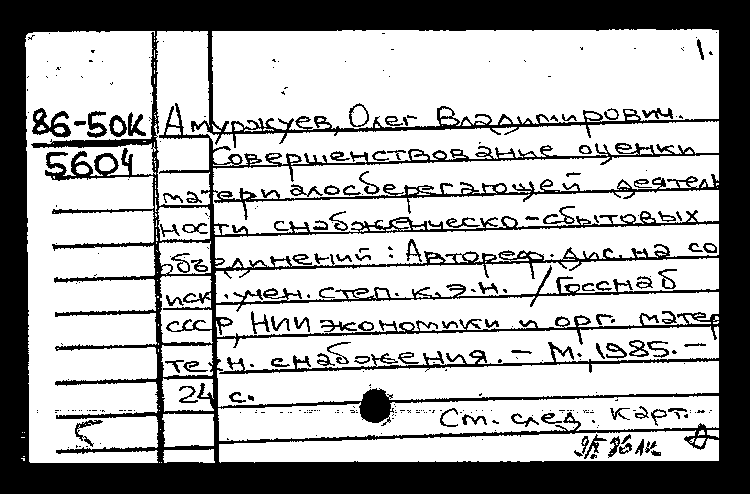 1.
86-50К
5604
Амуржуев, Олег Владимирович.
Совершенствование оценки
материалосберегающей деятель
ности снабженческо-сбытовых
объединений : Автореф. дис. на со
иск. учен. степ. к.э.н. / Госснаб
СССР, НИИ экономики и орг. матер
техн. снабжения. – М., 1985. –
24 с.
Ст. след. карт.
5